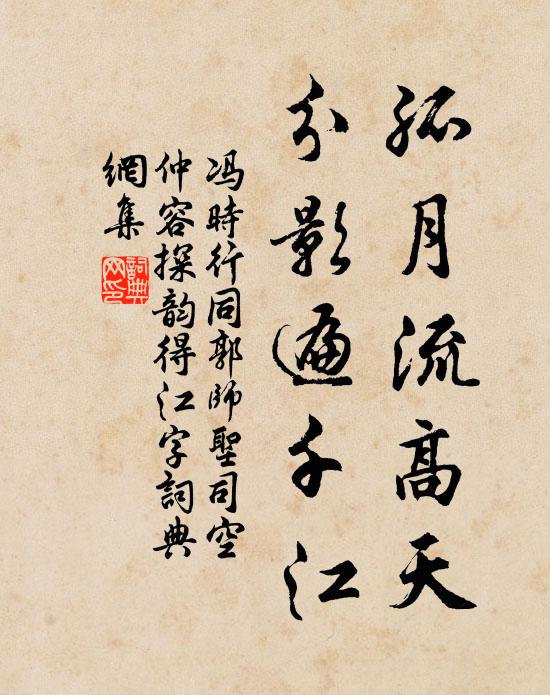 孤月流高天
分影遍千江
冯時行同郭師聖司空
仲容探韵得江字詞典
網集
詞典網印